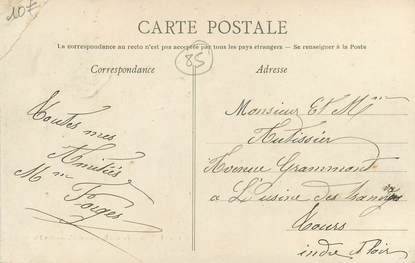 10F
CARTE POSTALE
La correspondance au recto n'est pas acceptée par tous les pays étrangers — Se renseigner à la Poste
85
Correspondance
Adresse
Toutes mes
Amitiés
Mme Forges
Monsieur Et Me
Hutissier
Avenue Grammont
a L'usine des
Tours
indre et Loir